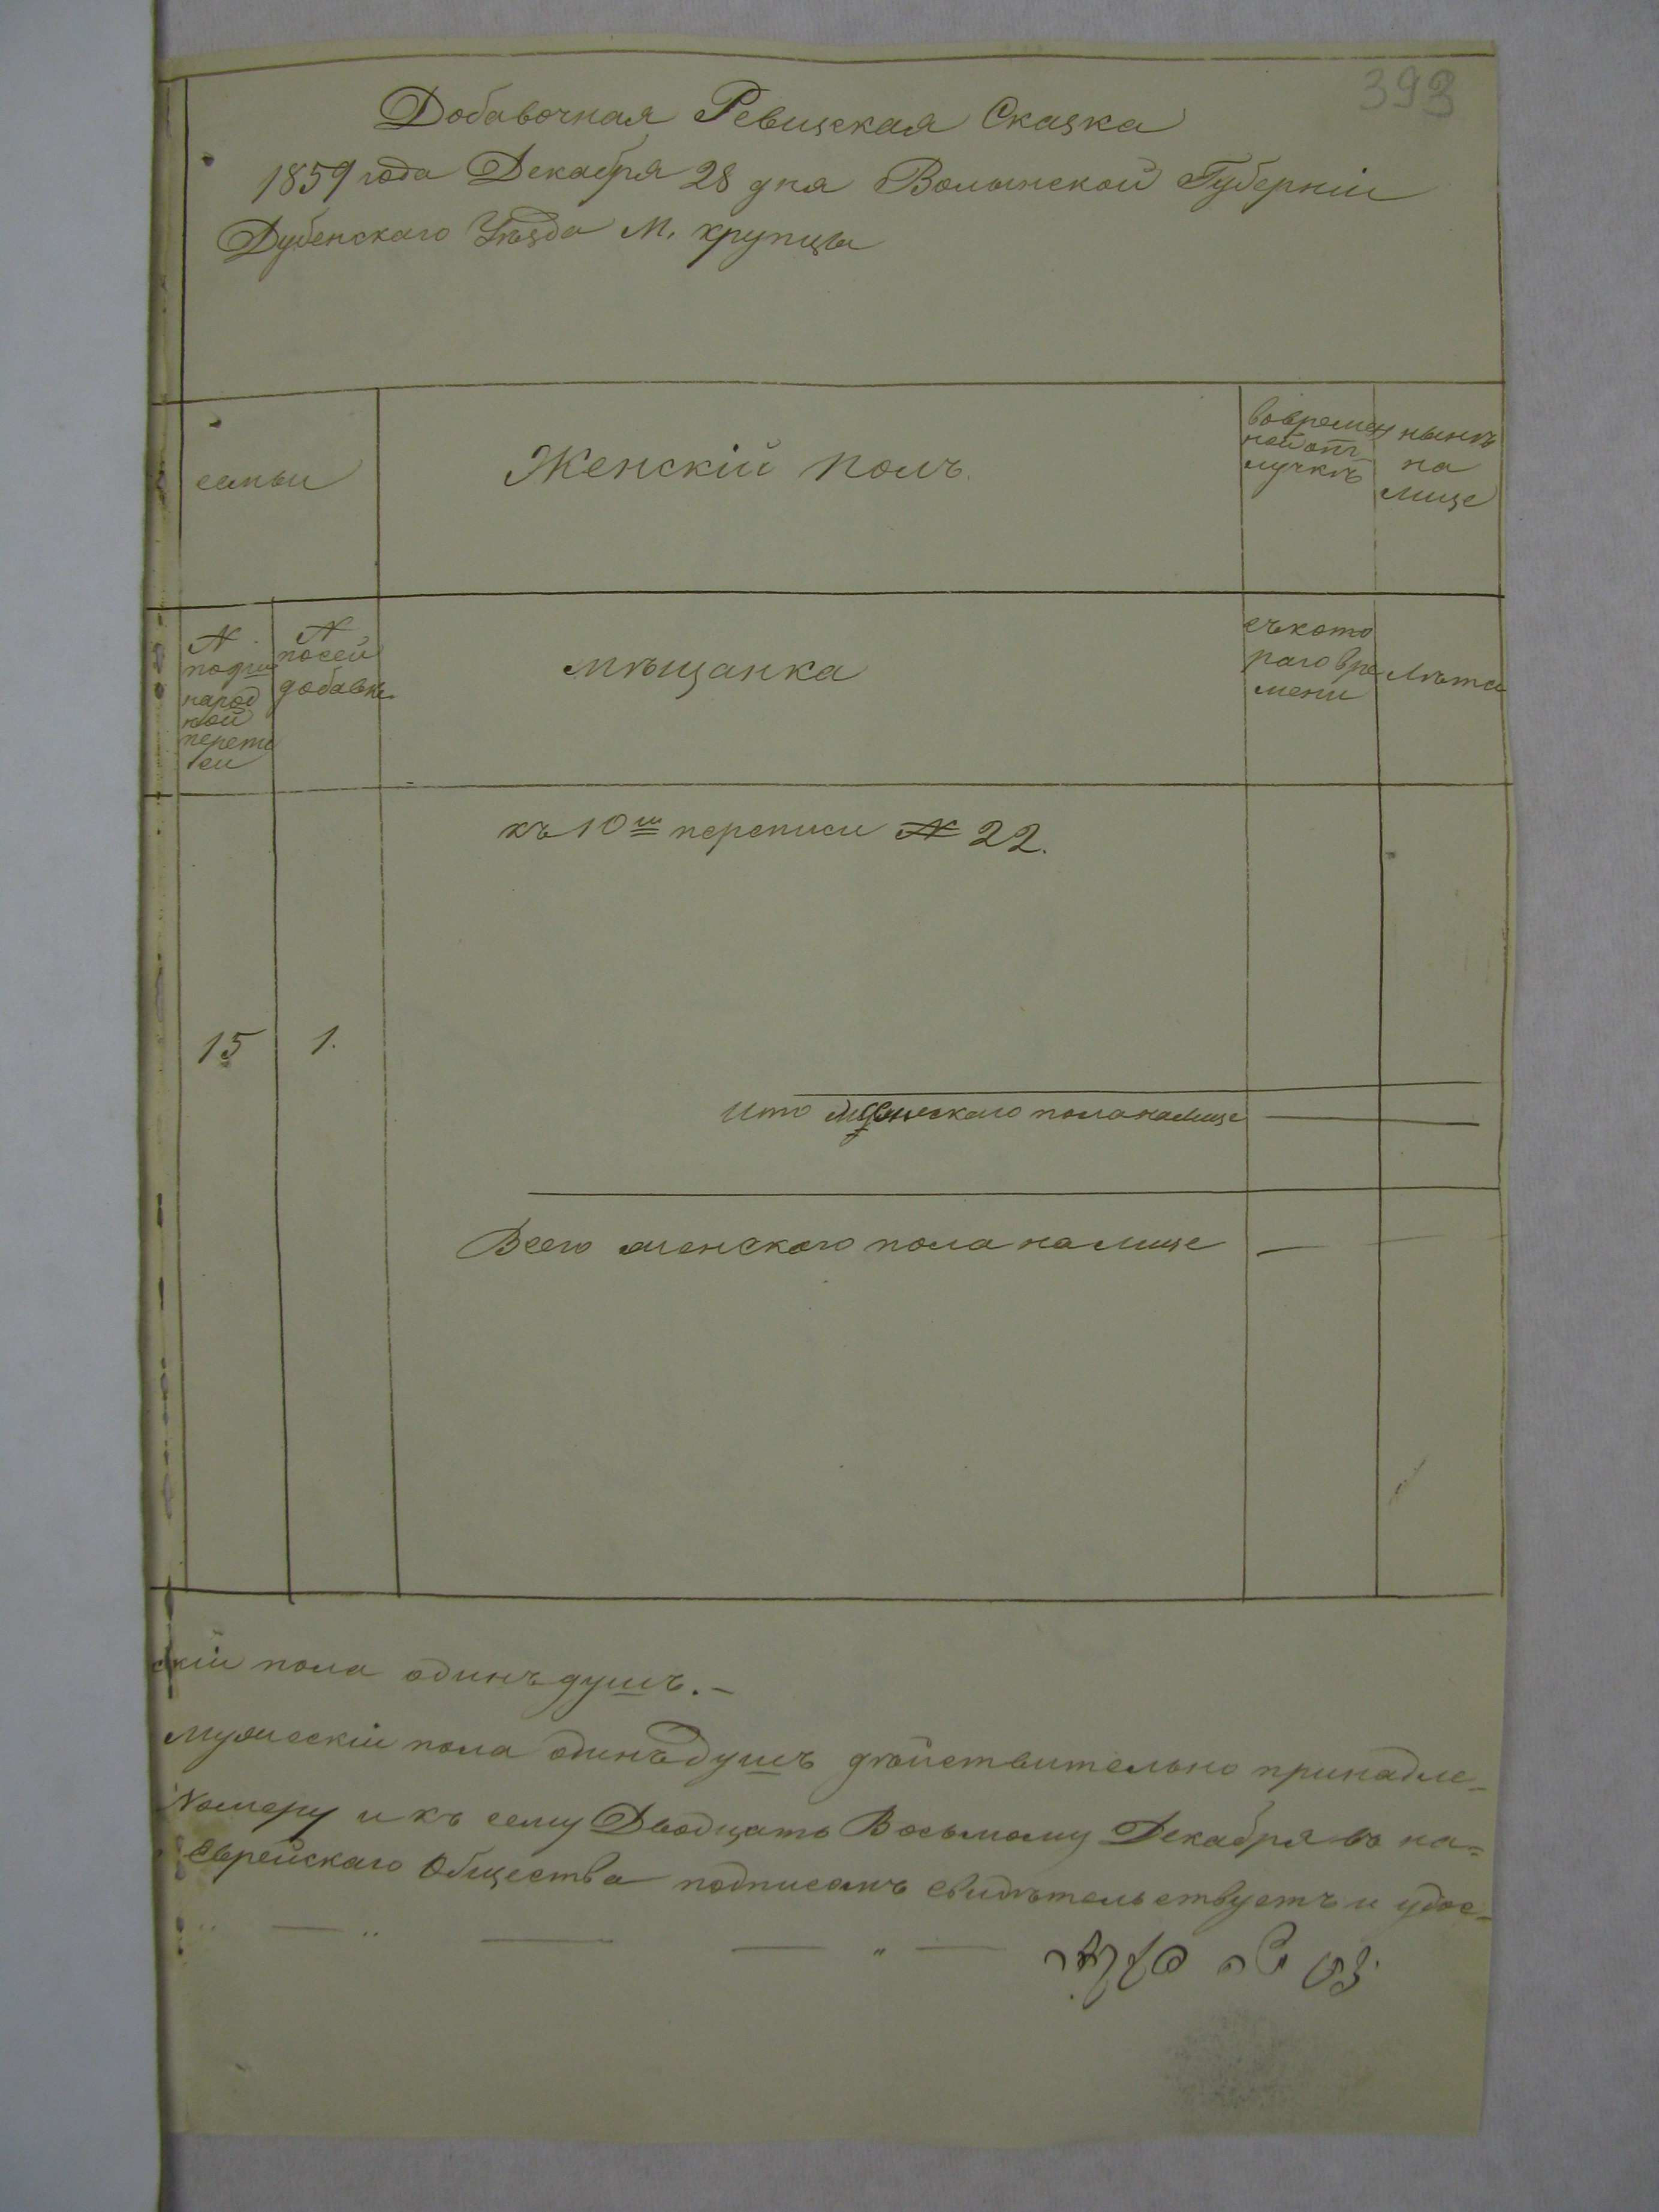 393
Добавочная Ревизская Сказка
1859 года Декабря 28 дня Волынской Губерніи
Дубенскаго Уѣзда М. крупца
семьи
Женскій полъ
вовремен
ной от
лучкѣ
нынѣ
на
лице
N
народ
ной
N
посей
добавке
мѣщанка
съкото
раго вре
мени
лѣта
къ 10й переписи № 22.
15
1.
пола налице
Всего женскаго пола налице
скій пола одинъ душъ.-
мужескій пола одинъ душъ дѣйствительно принадле-
Номеру и къ сему Двадцать Восьмому Декабря въ на=
Еврейскаго Общества подписомъ свидѣтельствуетъ и удос-